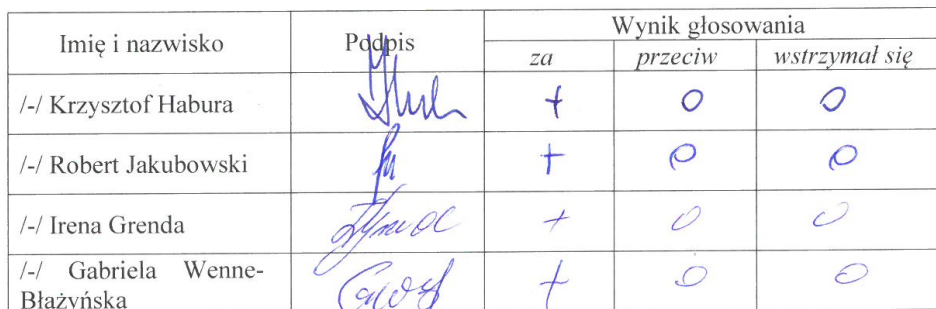 Imię i nazwisko Podpis Wynik głosowania
za przeciw wstrzymał się
/-/ Krzysztof Habura + 0 0
/-/ Robert Jakubowski + 0 0
/-/ Irena Grenda + 0 0
/-/ Gabriela Wenne-
Błażyńska + 0 0